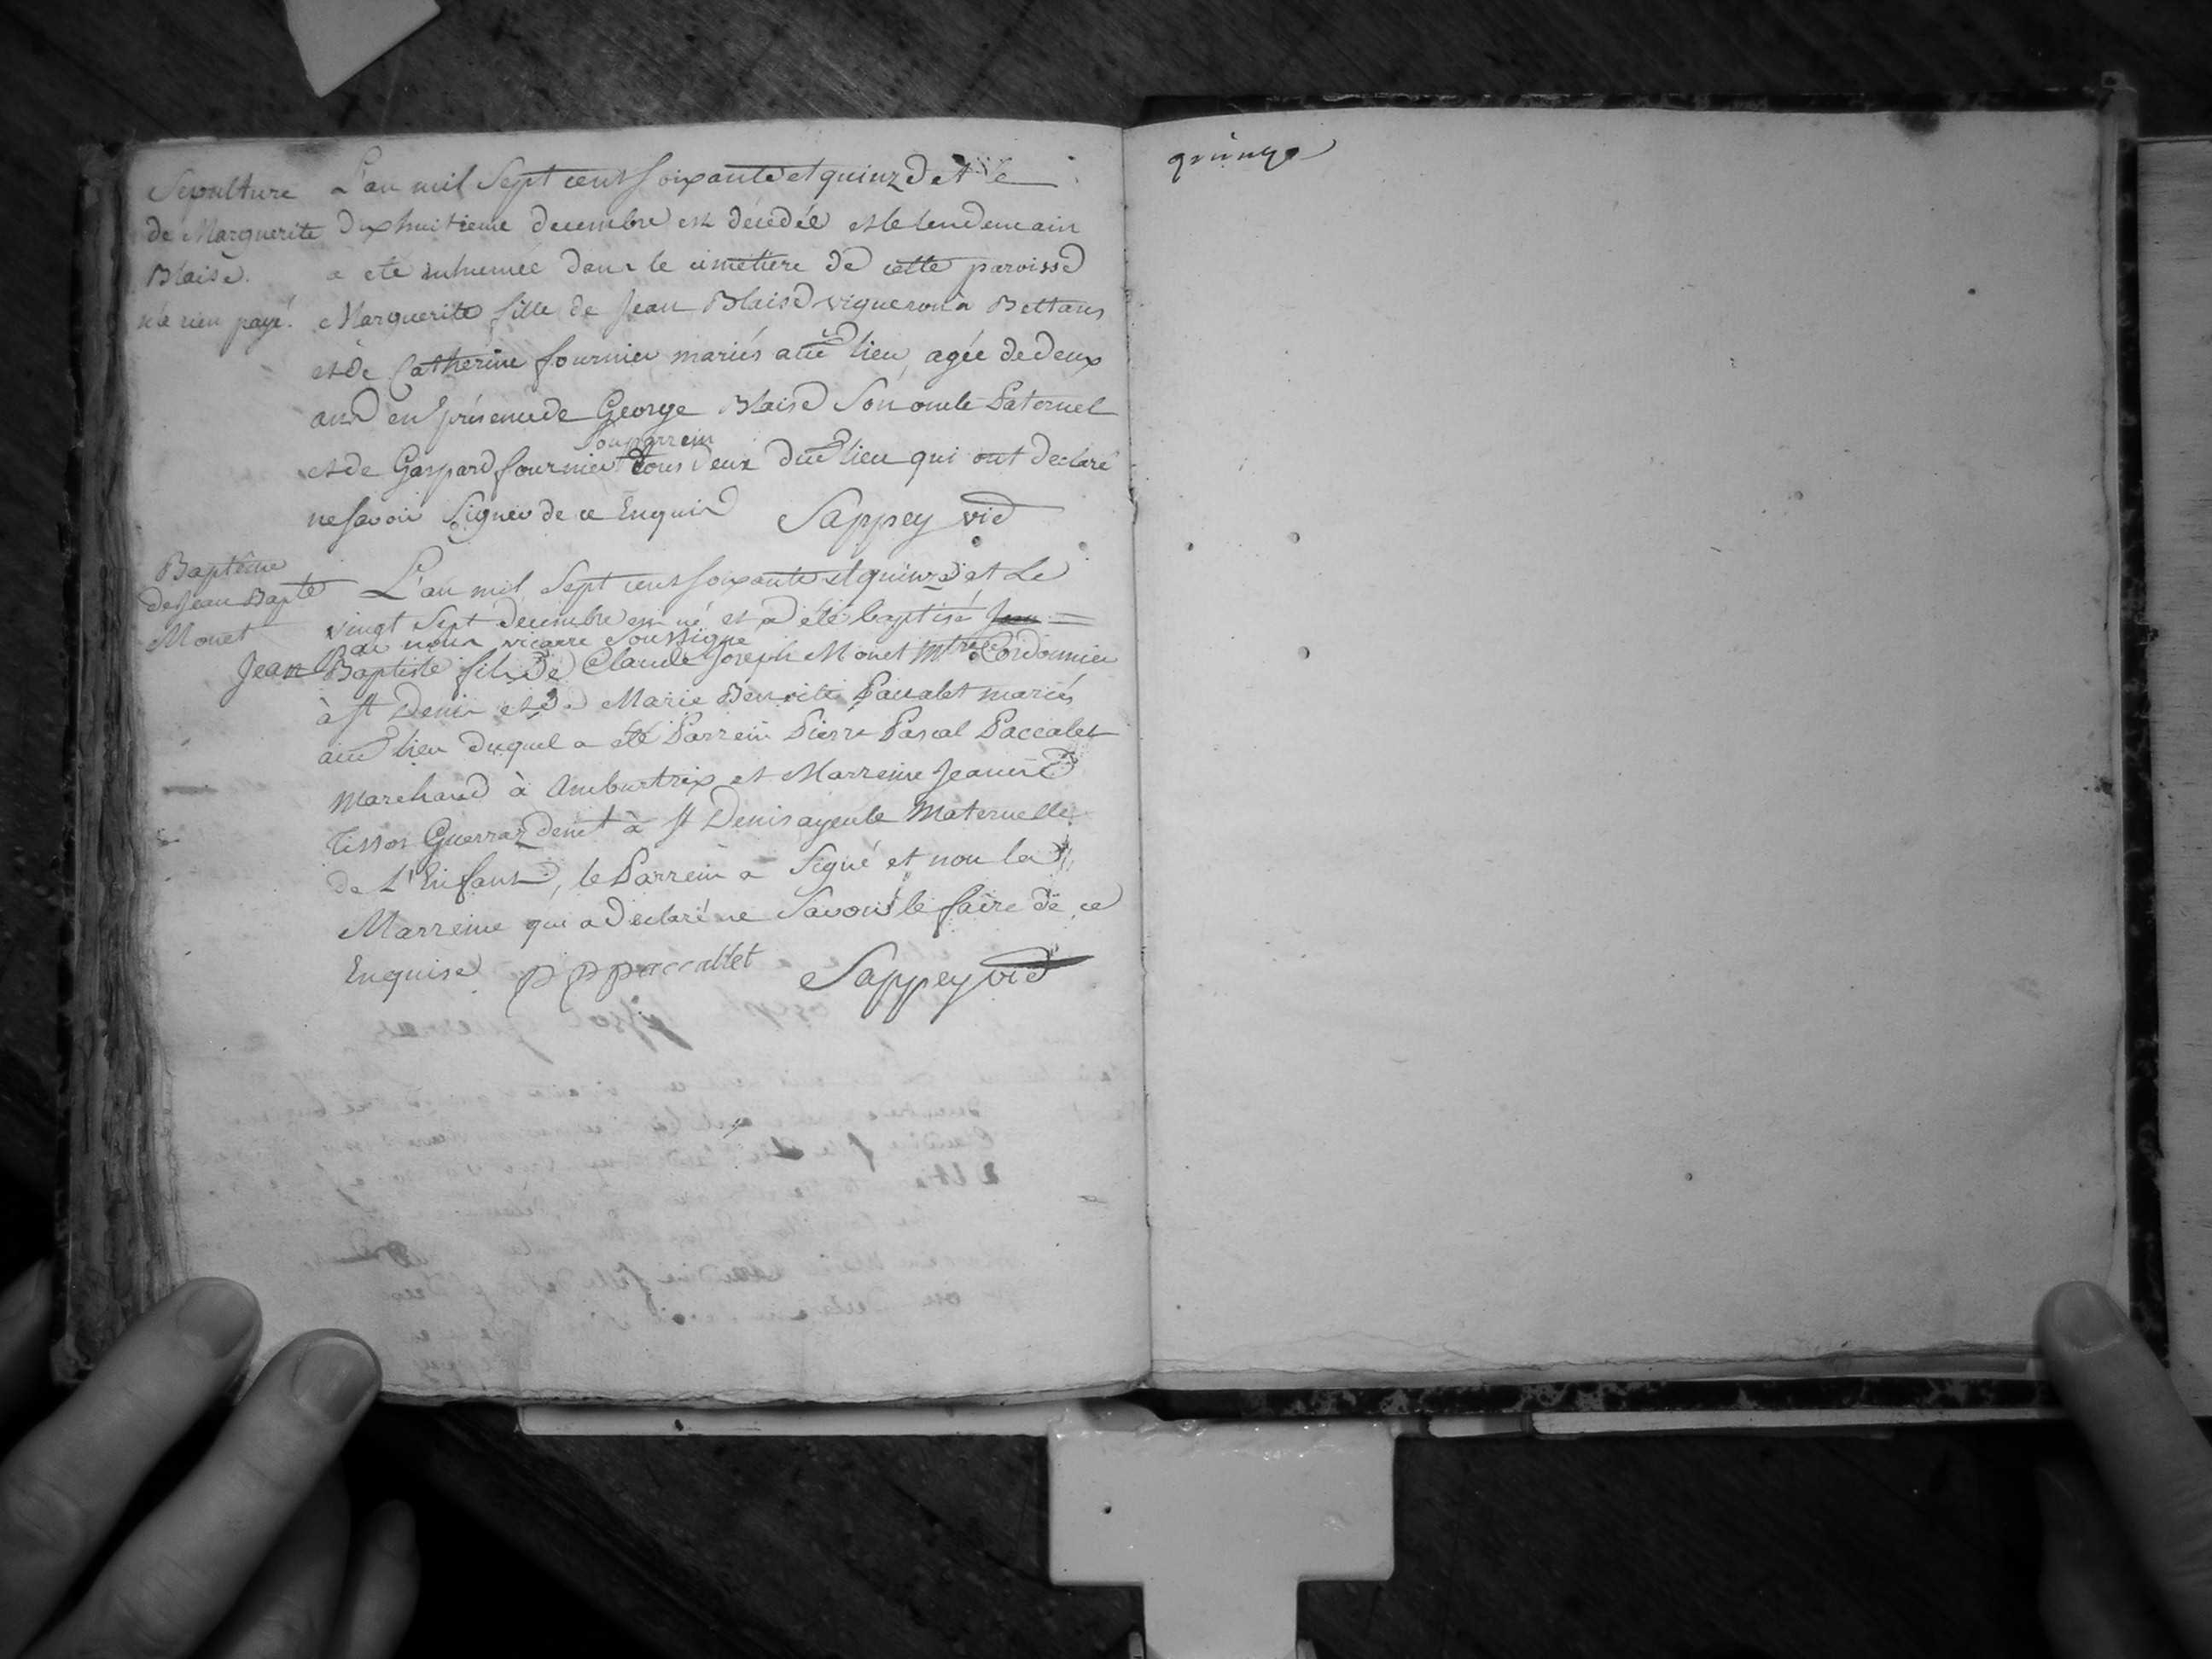 Sepulture
de Marguerite
Blaise.
n'a rien payé.
L'an mil Sept cent soixante et quinze et le
dixhuitieme decembre est décedée et le lendemain
a eté inhumée dans le cimetiere de cette paroisse
Marguerite fille de Jean Blaise vigneron à Bettans
et de Catherine fournier mariés aud lieu, agée de deux
ans en présence de George Blaise Son oncle Paternel
Son parrein
et de Gaspard fournier tous deux dud lieu qui ont declaré
ne savoir Signer de ce Enquis Sappey vic
Baptême
de Jean Bapte
Monet
L'an mil Sept cent soixante et quinze et Le
vingt Sept décembre est né et a été baptisé Jean =
par nous vicaire Soussigné
Jean Baptiste fils de Claude Joseph Monet Mtre Cordonnier
à St Denis et de Marie Benoite Paccalet mariés
aud lieu duquel a été Parrein Pierre Pascal Paccalet
Marchand à Ambutrix et Marreine Jeanne
Tissot Guerraz demt à St Denis ayeule Maternelle
de L'Enfant, le Parrein a Signé et non la
Marreine qui a declaré ne Savoir le faire de ce
Enquise p p paccallet Sappey vic
quinze